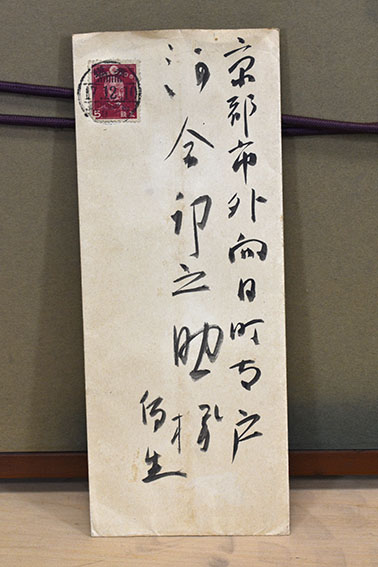 京都市外向日町寺戸
河合卯之助様
17.12.
5